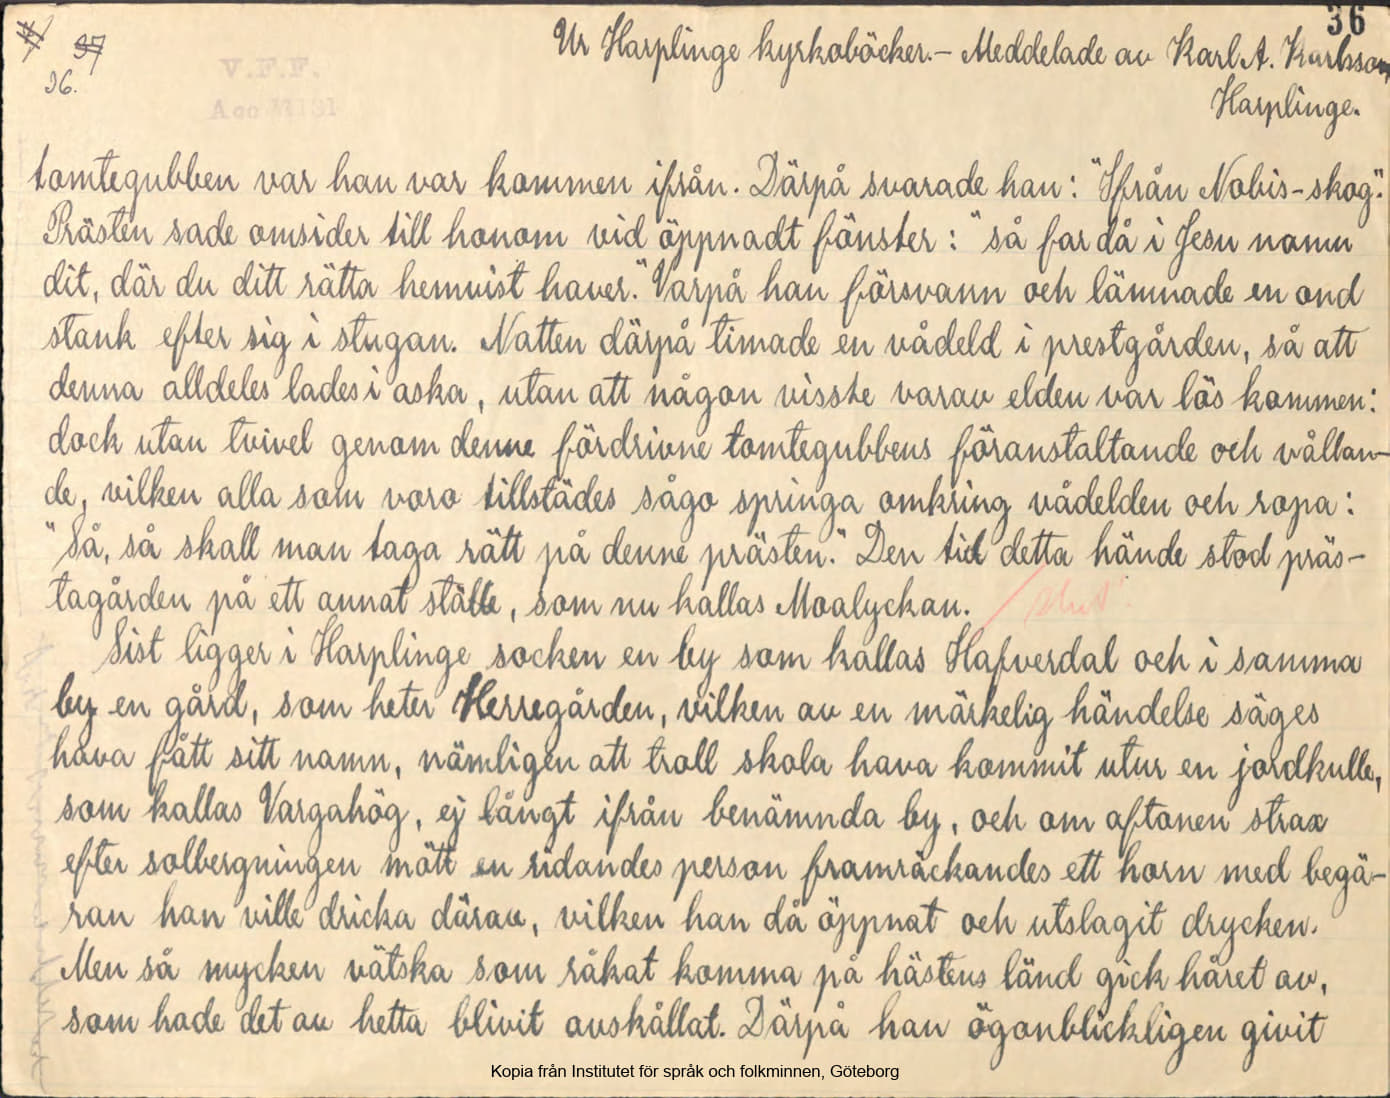 36
37
36.
V.F.F.
Ur Harplinge kyrkoböcker. - Meddelade av Karl A. Karlsson,
Harplinge.
tomtegubben var han var kommen ifrån. Därpå svarade han: "Ifrån Nobis-skog".
Prästen sade omsider till honom vid öppnadt fönster: "så far då i Jesu namn
dit, där du ditt rätta hemvist haver." Varpå han försvann och lämnade en ond
stank efter sig i stugan. Natten därpå timade en vådeld i prestgården, så att
denna alldeles lades i aska, utan att någon visste varav elden var lös kommen:
dock utan tvivel genom denne fördrivne tomtegubbens föranstaltande och vållan-
de, vilken alla som voro tillstädes sågo springa omkring vådelden och ropa:
"Så, så skall man taga rätt på denne prästen." Den tid detta hände stod präs-
tagården på ett annat ställe, som nu kallas Moalyckan.
slut
Sist ligger i Harplinge socken en by som kallas Hafverdal och i samma
by en gård, som heter Herregården, vilken av en märkelig händelse säges
hava fått sitt namn, nämligen att troll skola hava kommit utur en jordkulle,
som kallas Vargahög, ej långt ifrån benämnda by, och om aftonen strax
efter solbergningen mött en ridandes person framräckandes ett horn med begä-
ran han ville dricka därav, vilken han då öppnat och utslagit drycken.
Men så mycken vätska som råkat komma på hästens länd gick håret av,
som hade det av hetta blivit avskållat. Därpå han ögonblickligen givit
Kopia från Institutet för språk och folkminnen, Göteborg